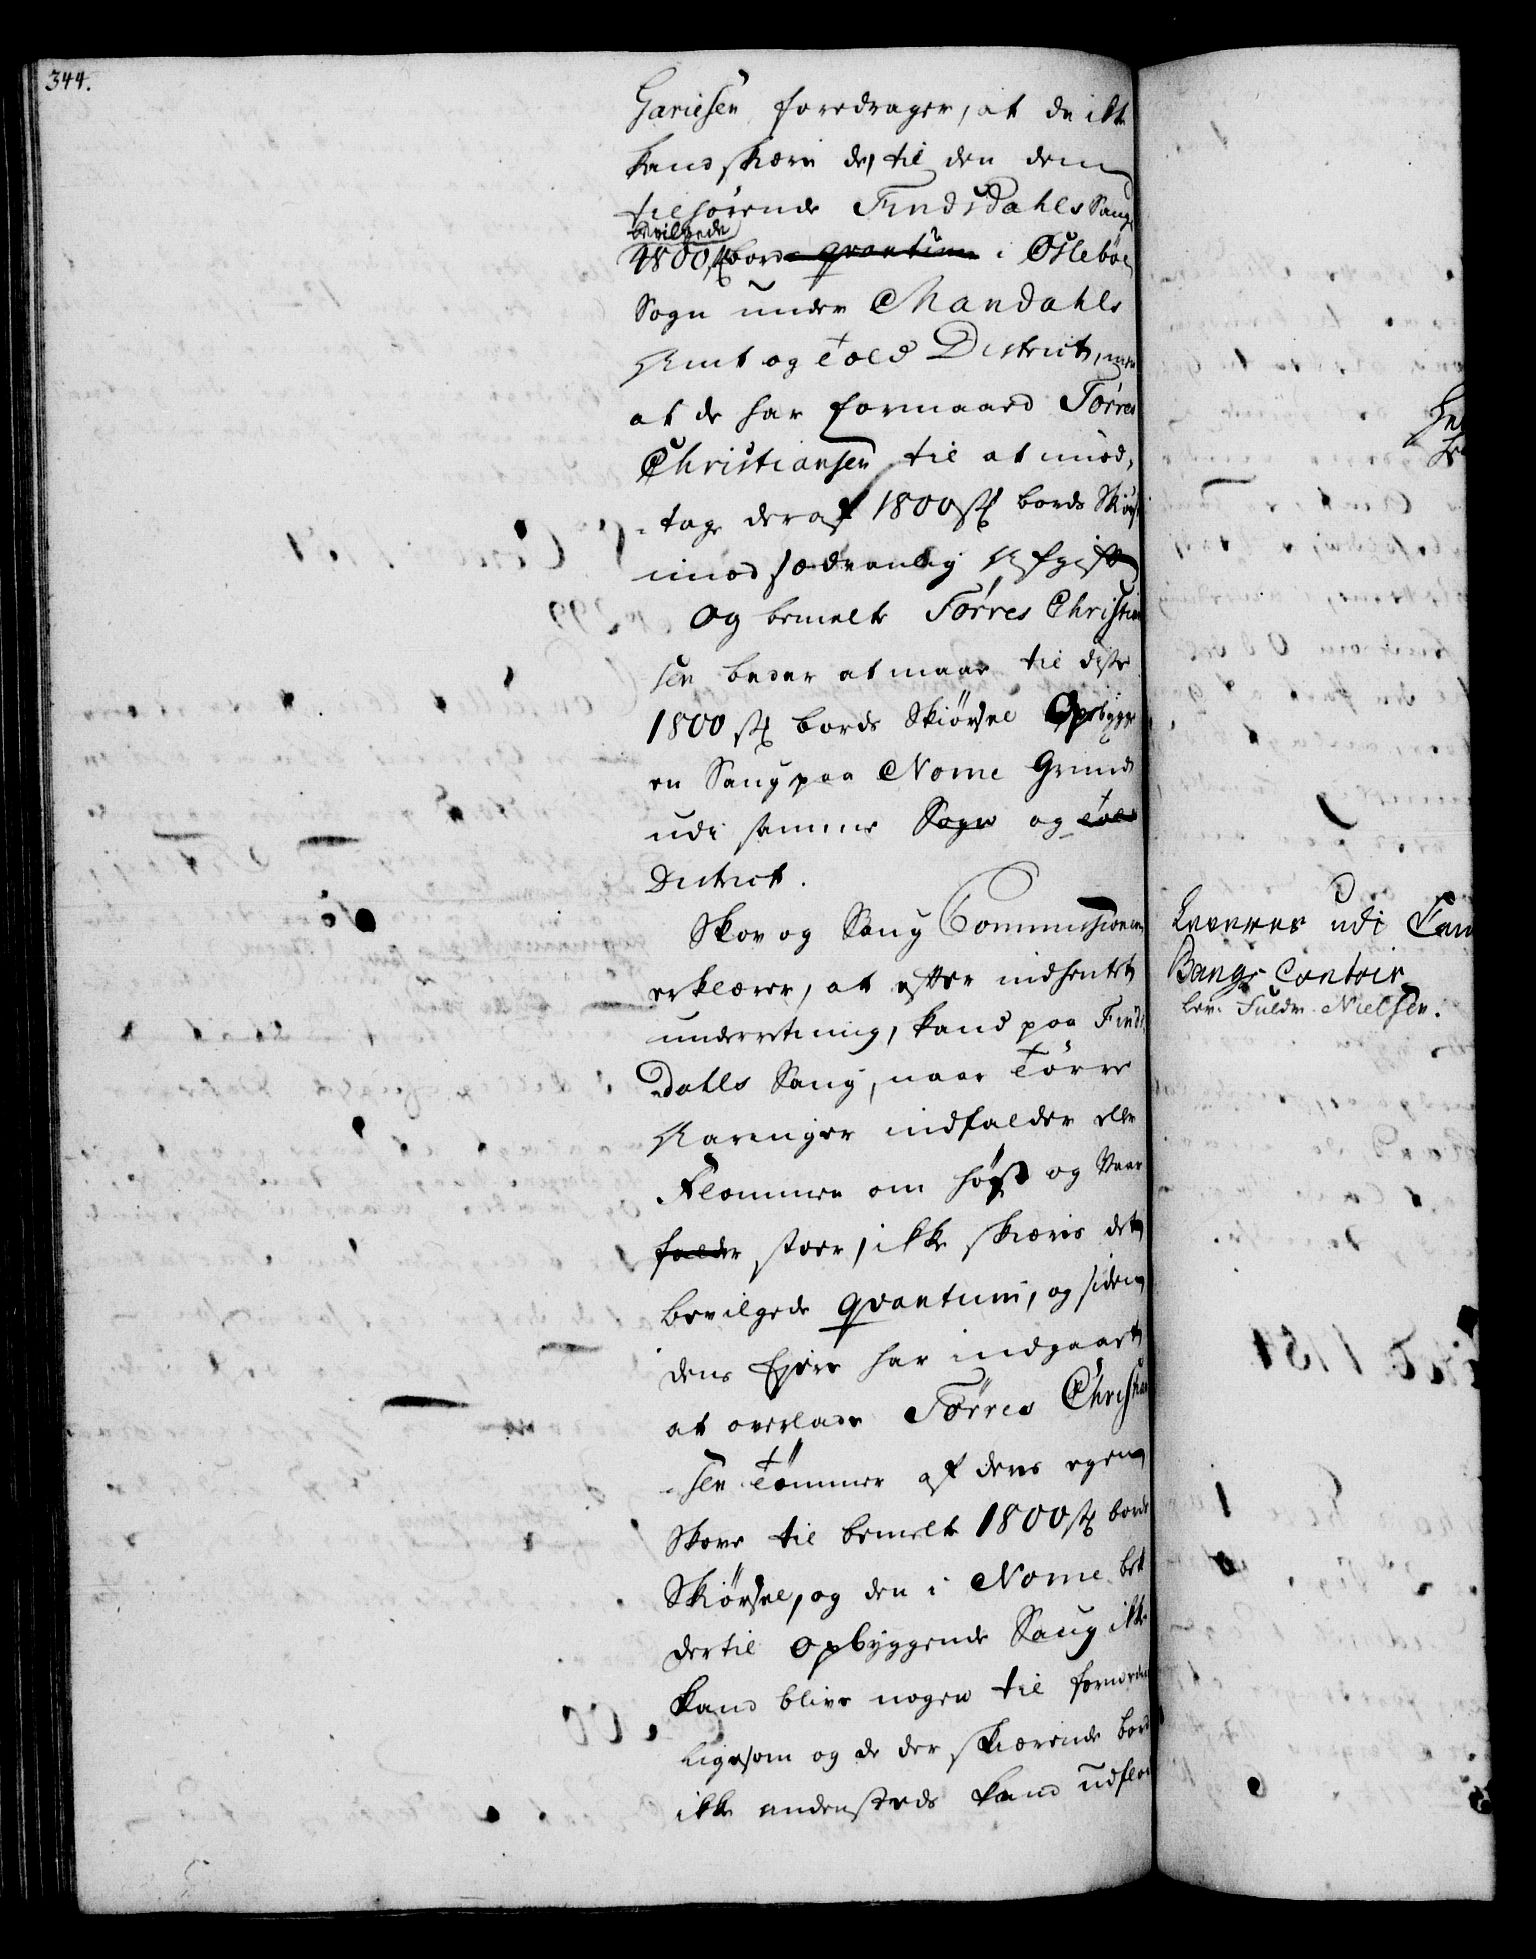 344.
Gariesen foredrager, at de ikke
kand skiære de, til den dem
tilhørende Findsdahls Saug
bevilgede
4800 st bord qvantum i Oslebøe
Sogn under Mandahls
Amt og Told District, men
at de har formaaed Tørres
Christiansen til at imod,
tage deraf 1800 st bords Skiørsel
imod sædvanlig Afgift
Og bemelte Tørres Christian
sen beder at maae til disse
1800 st bords Skiørsel Opbygge
en Saug paa Nome Grund
udi samme Sogn og Told
District.
Skov og Saug Commissionen
erklærer, at efter indhentet
underretning, kand paa Finds
Dahls Saug, naar Tørre
Aaringer indfalder eller
Flommen om høst og Vaar
falder stoer, ikke skiæres det
bevilgede qvantum, og siden
dens Ejere har indgaaet
at overlade Tørres Christian
sen Tømmer af deres egen
Skove til bemelte 1800 st bords
Skiørsel, og den i Nome
dertil opbyggende Saug ikke
kand blive nogen til fornærm
ligesom og de der skiærende bord
ikke andensteds kand udfløe
Leveres udi
Bangs Contoir
lev. Fuldm. Nielsen.